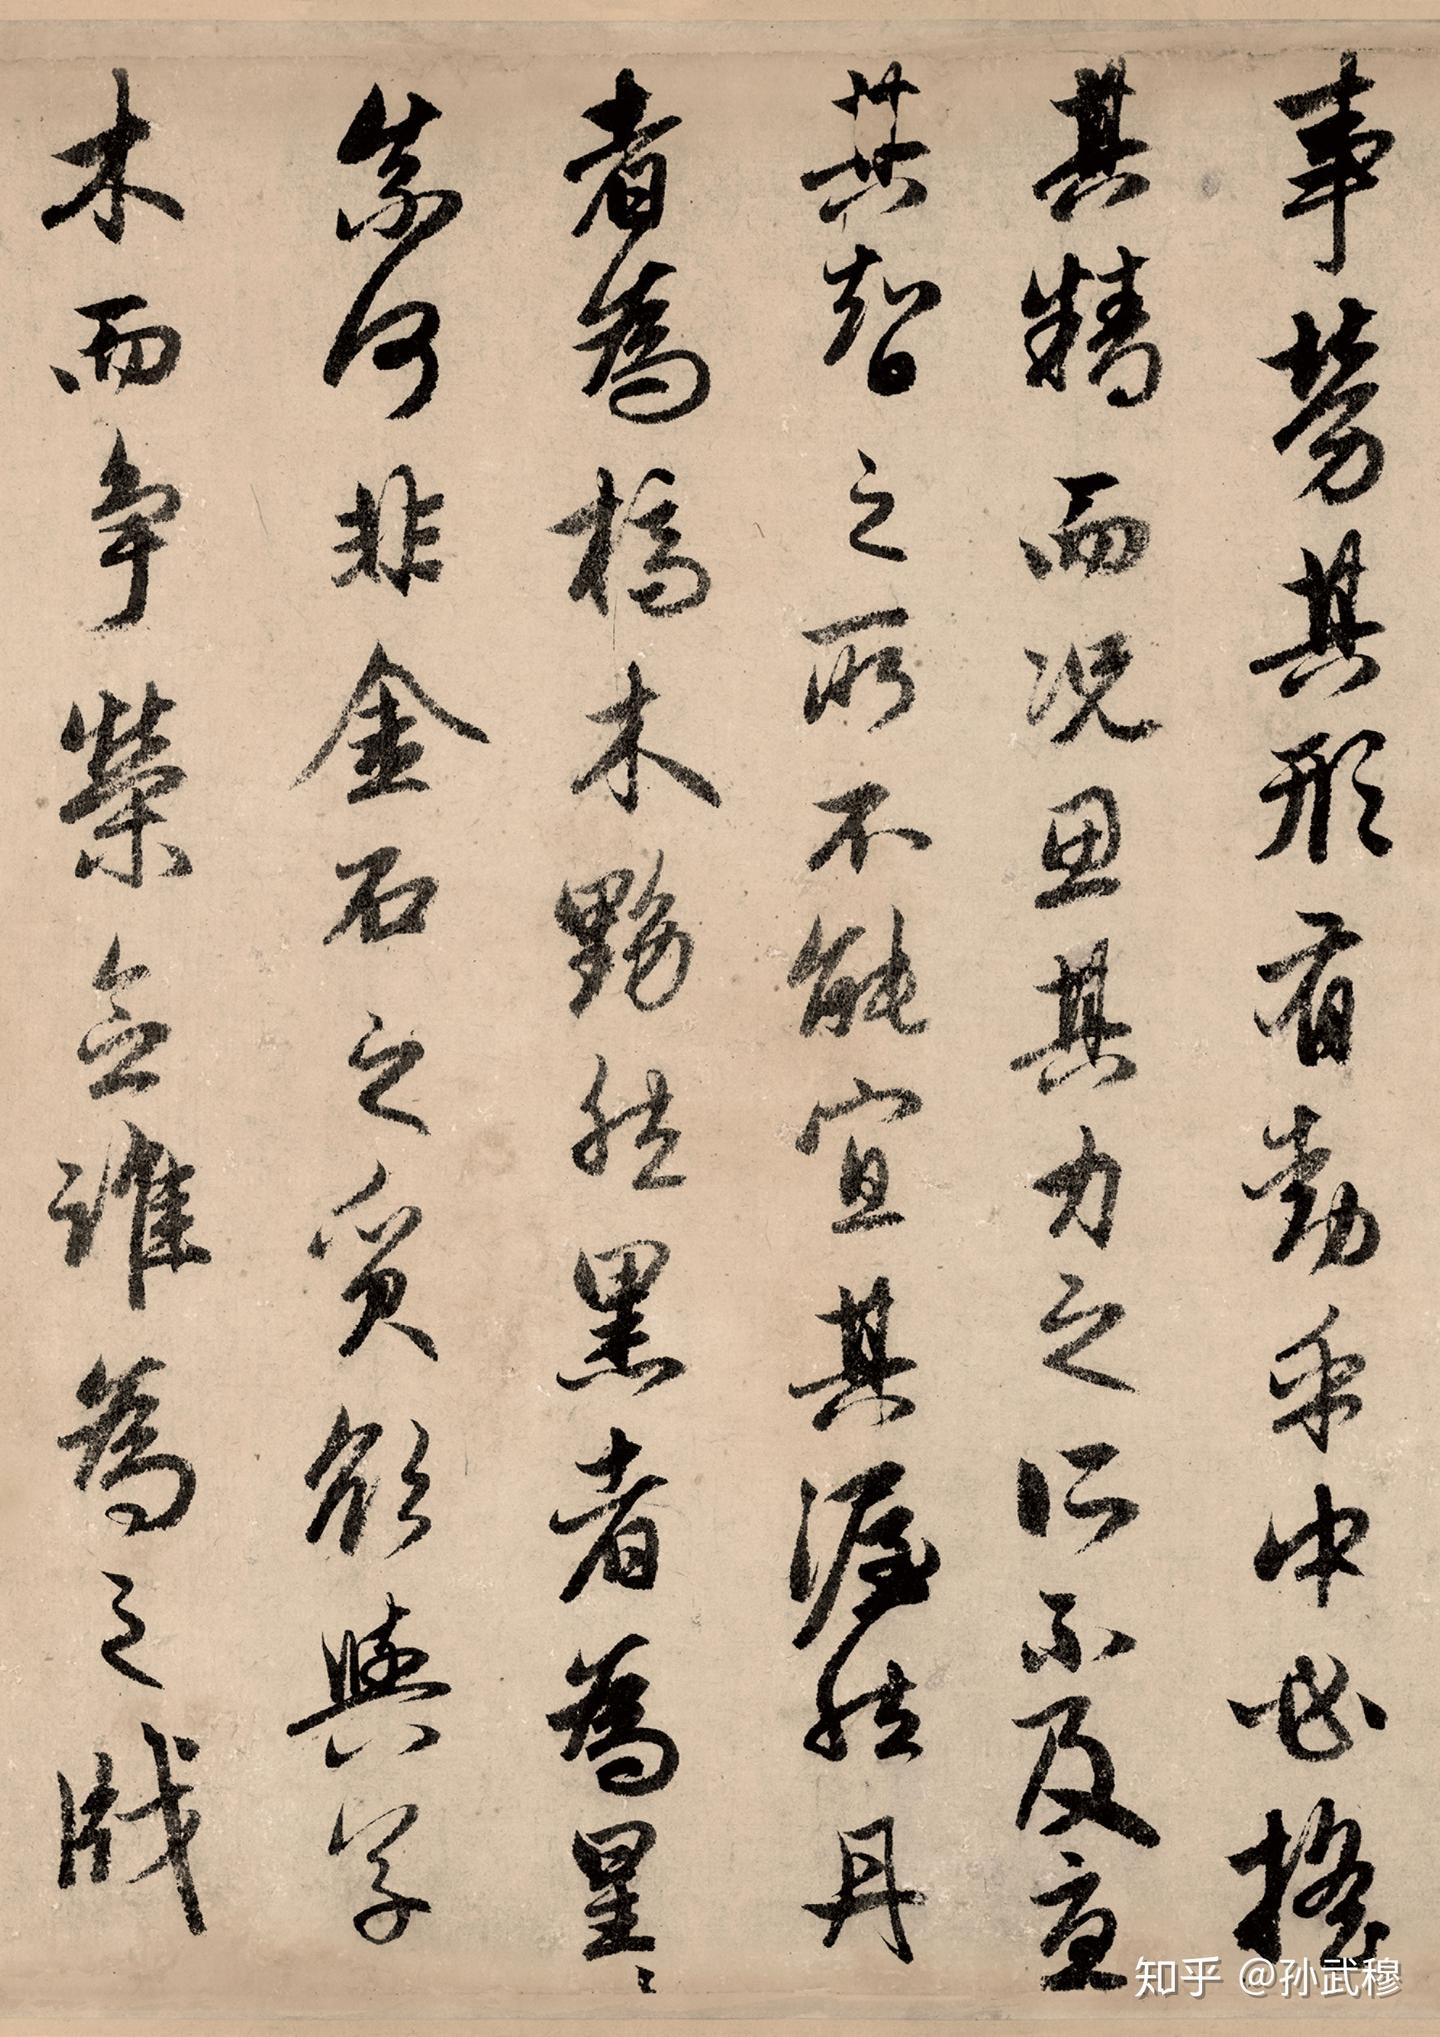 事勞其形有動乎中必搖
其精而况思其力之所不及憂
其智之所不能宜其渥然丹
者為槁木黟然黑者為星〻
奈何非金石之質欲與草
木而争榮念誰為之戕
知乎 @孙武穆